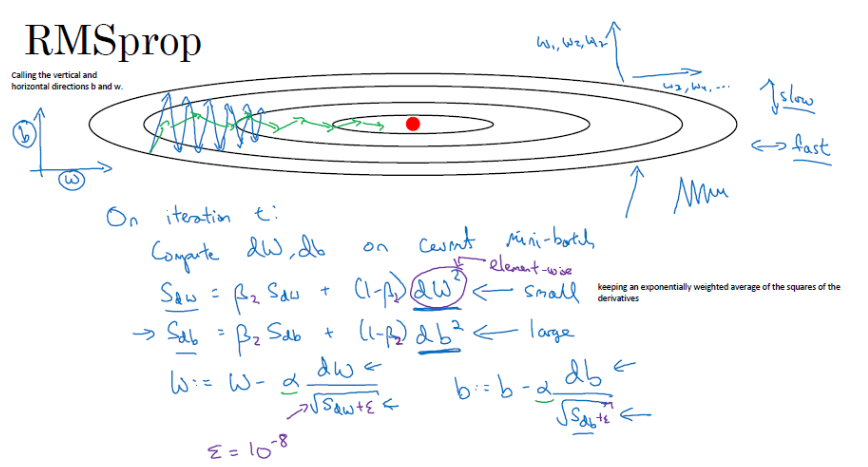 RMSprop
Calling the vertical and
horizontal directions b and w.
w₁, w₂, w₂
w₃, w₄, ...
↕ slow
↔ fast
b
w
On iteration t:
Compute dW, db on current mini-batch
element-wise
S_dw = β₂ S_dw + (1-β₂) dW² ← small
keeping an exponentially weighted average of the squares of the
derivatives
→ S_db = β₂ S_db + (1-β₂) db² ← large
W := W - α dW / √(S_dw + ε) ←
b := b - α db / √(S_db + ε) ←
ε = 10⁻⁸